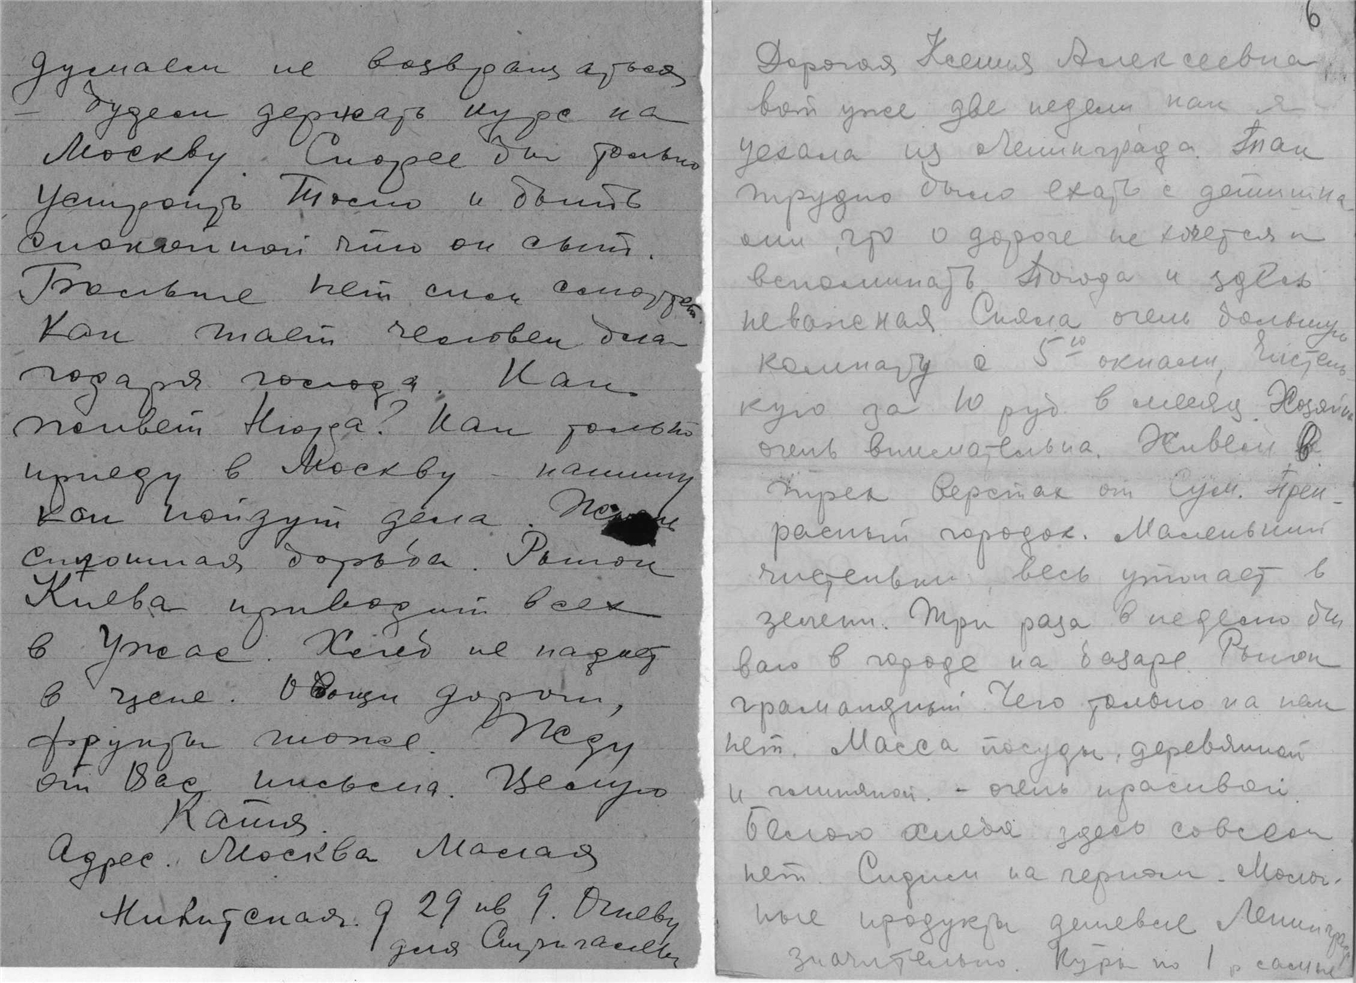 думаем не возвращаться
– будем держать курс на
Москву. Скорее бы только
устроить Тосю и быть
спокойной что он сыт.
Больше нет сил смотреть
как тает человек бла
годаря голода. Как
живет Нюра? Как только
приеду в Москву – напишу
как пойдут дела. Жизнь
сплошная борьба. Рынок
Киева приводит всех
в ужас. Хлеб не падает
в цене. Овощи дороги,
фрукты тоже. Жду
от Вас письма. Целую
Катя.
Адрес. Москва Малая
Никитская. д 29 кв 9. Огневу
для
6
Дорогая Ксения Алексеевна
вот уже две недели как я
уехала из Ленинграда. Так
трудно было ехать с детишка
ми, что о дороге не хочется и
вспоминать. Погода и здесь
неважная Сняла очень большую
комнату с 5ю окнами, чистень
кую за 10 руб в месяц. Хозяйка
очень внимательна. Живем в
трех верстах от Сум. Прек-
расный городок. Маленький
чистенький, весь утопает в
зелени. Три раза в неделю бы
ваю в городе на базаре. Рынок
грамандный. Чего только на нем
нет. Масса посуды, деревянной
и глиняной. – очень красивой.
Белого хлеба здесь совсем
нет. Сидим на черном. Молоч-
ные продукты дешевле Ленинграда
значительно. Куры по 1 р самые